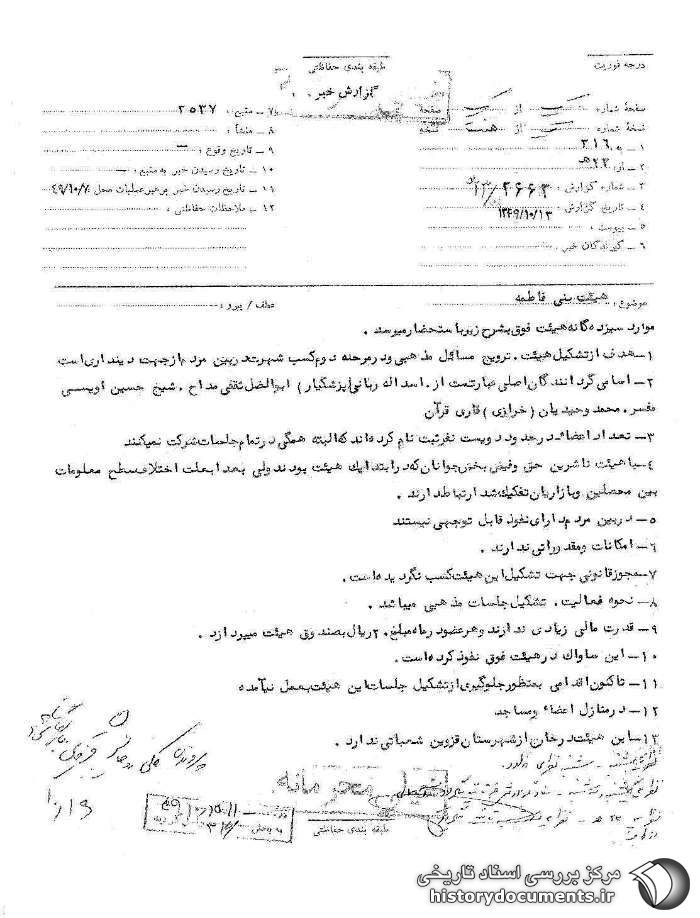 درجه فوریت
طبقه بندی حفاظتی
گزارش خبر
صفحهٔ شماره یک از یک صفحه
نسخهٔ شماره یک از هفت نسخه
۱ – به ۳۱۶
۲ – از: ۲۲ هـ
۳ – شماره گزارش: ۲۶۶۳
۴ – تاریخ گزارش: ۱۳۴۹/۱۰/۱۳
۵ – پیوست:
۶ – گیرندگان خبر:
۷ – منبع: ۲۵۳۷
۸ – منشأ:
۹ – تاریخ وقوع:
۱۰ – تاریخ رسیدن خبر به منبع:
۱۱ – تاریخ رسیدن خبر برهبر عملیات محل ۴۹/۱۰/۷
۱۲ – ملاحظات حفاظتی:
موضوع: هیئت بنی فاطمه
عطف / پیرو:
موارد سیزده گانه هیئت فوق بشرح زیر باستحضار میرسد .
۱– هدف از تشکیل هیئت . ترویج مسائل مذهبی و در مرحله دوم کسب شهرت در بین مردم از جهت دینداری است
۲– اسامی گردانندگان اصلی عبارتست از . اسداله ربانی (پزشگیار) ابوالفضل ثقفی مداح . شیخ حسین اویسی
مفسر . محمد وحیدیان (خرازی) قاری قرآن
۳– تعداد اعضاء در حدود دویست نفر ثبت نام کرده اند که البته همگی در تمام جلسات شرکت نمیکنند
۴– با هیئت ناشرین حق و فیض بخش جوانان که در ابتدا یک هیئت بودند ولی بعدا بعلت اختلاف سطح معلومات
بین محصلین و بازاریان تفکیک شد ارتباط دارند .
۵– در بین مردم دارای نفوذ قابل توجهی نیستند
۶– امکانات و مقدوراتی ندارند .
۷– مجوز قانونی جهت تشکیل این هیئت کسب نگردیده است .
۸– نحوه فعالیت . تشکیل جلسات مذهبی میباشد .
۹– قدرت مالی زیادی ندارند و هر عضو در ماه مبلغ ۲۰ ریال بصندوق هیئت میپردازد .
۱۰– این ساواک در هیئت فوق نفوذ کرده است .
۱۱– تاکنون اقدامی بمنظور جلوگیری از تشکیل جلسات این هیئت بعمل نیامده
۱۲– در منازل اعضاء و مساجد
۱۳– این هیئت در خارج از شهرستان قزوین شعباتی ندارد .
خیلی محرمانه
طبقه بندی حفاظتی
به بخش ۳۱۶
مرکز بررسی اسناد تاریخی
historydocuments.ir